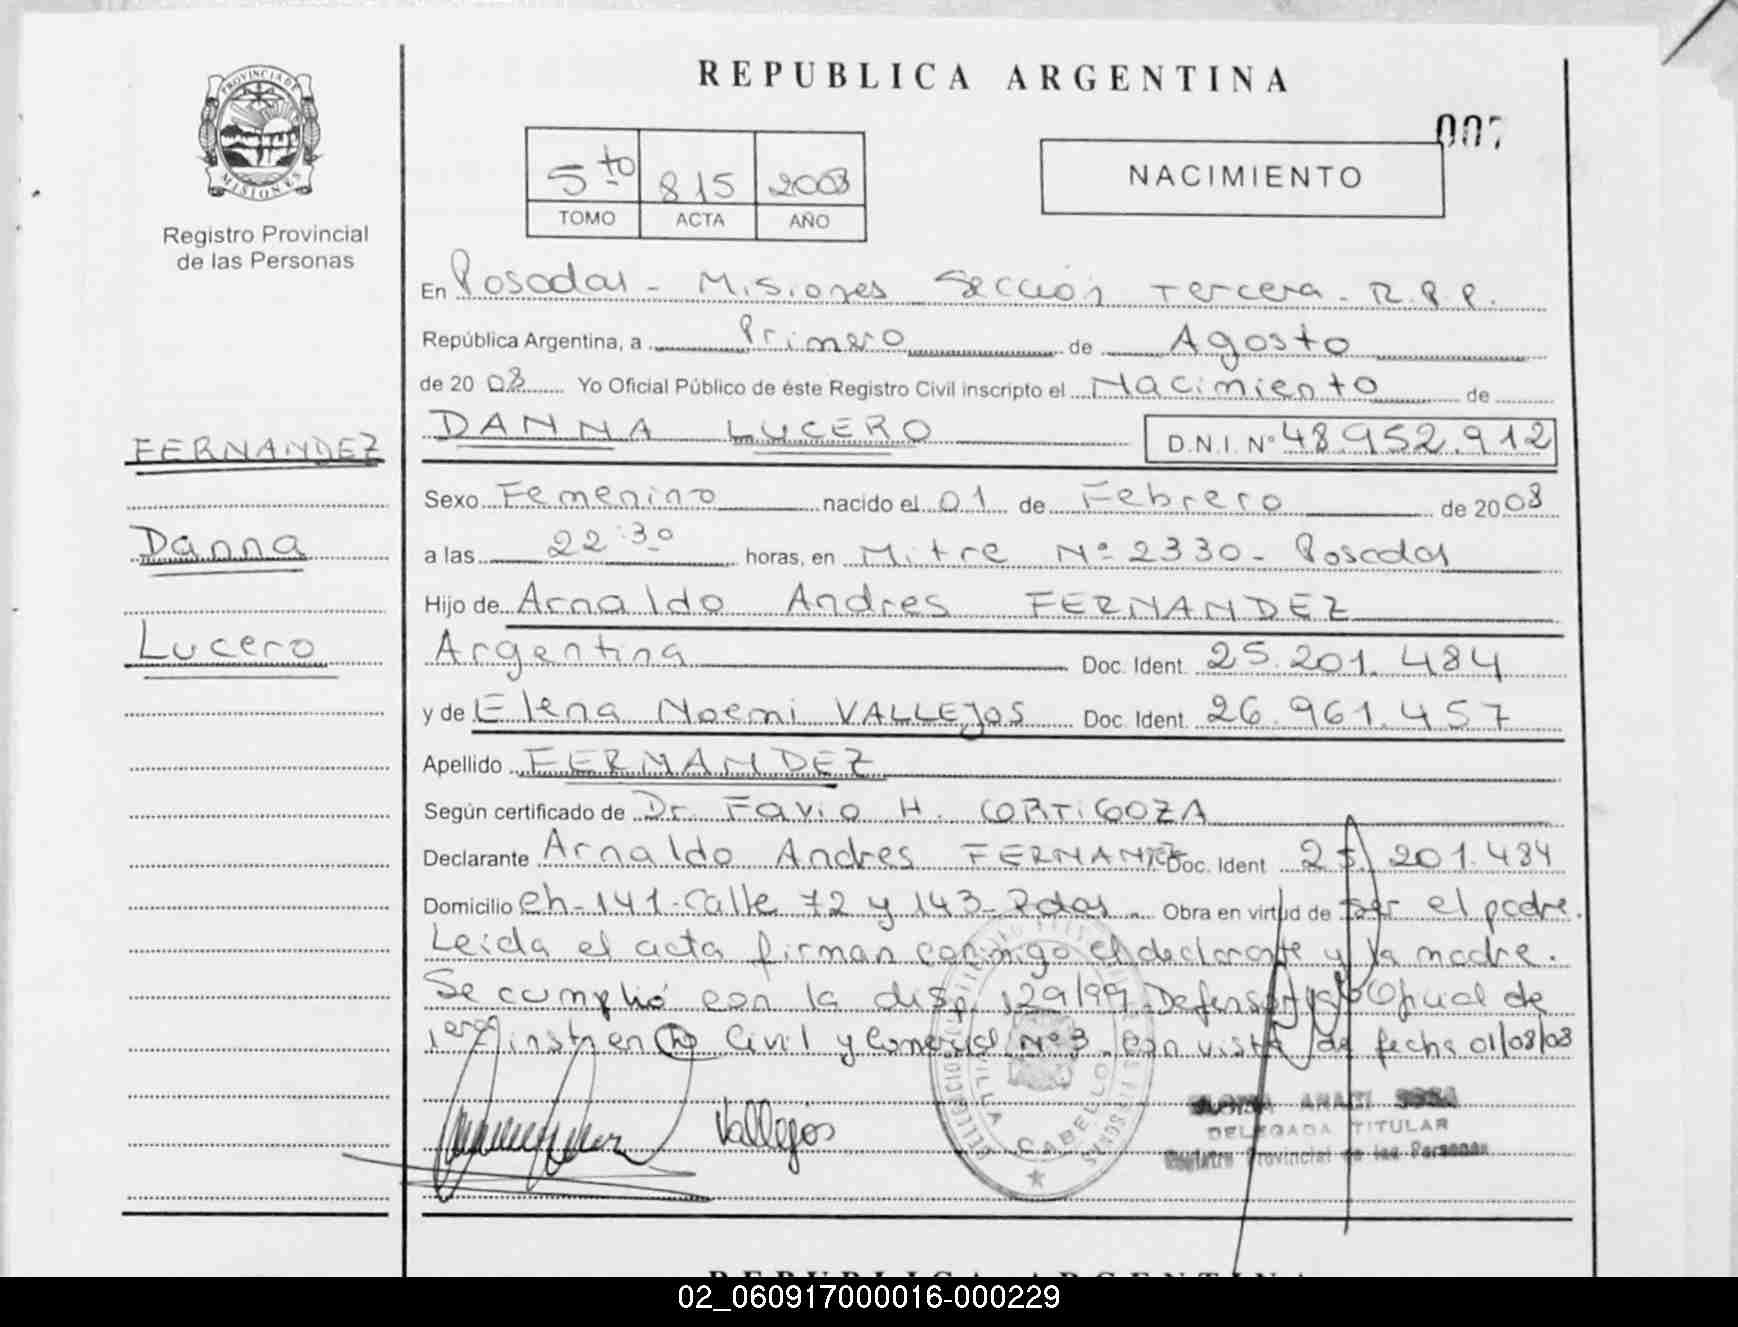 REPUBLICA ARGENTINA
007
PROVINCIA DE MISIONES
Registro Provincial
de las Personas
5to 815 2008
TOMO ACTA AÑO
NACIMIENTO
En Posadas - Misiones Sección Tercera - R.P.P.
República Argentina, a Primero de Agosto
de 2008 Yo Oficial Público de éste Registro Civil inscripto el Nacimiento de
DANNA LUCERO D.N.I. Nº 48.952.912
FERNANDEZ
Danna
Lucero
Sexo Femenino nacido el 01 de Febrero de 2008
a las 22:30 horas, en Mitre Nº 2330 - Posadas
Hijo de Arnaldo Andres FERNANDEZ
Argentina Doc. Ident. 25.201.484
y de Elena Noemi VALLEJOS Doc. Ident. 26.961.457
Apellido FERNANDEZ
Según certificado de Dr. Favio H. CORTIGOZA
Declarante Arnaldo Andres FERNANDEZ Doc. Ident 25.201.484
Domicilio Ch-141-Calle 72 y 143-Pdas. Obra en virtud de ser el padre.
Leida el acta firman conmigo el declarante y la madre.
Se cumplió con la disp. 129/99 Oficial de
1era inst en lo Civil y Comercial Nº 3. con vista de fecha 01/08/08
Vallejos
VILLA CABELLO
SOSA
DELEGADA TITULAR
Registro Provincial de las Personas
REPUBLICA ARGENTINA
02_060917000016-000229